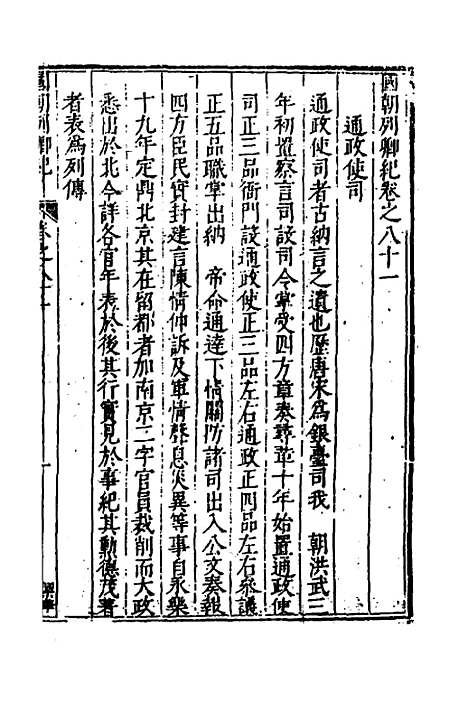 國朝列卿紀卷之八十一
通政使司
通政使司者古納言之遺也歷唐宋為銀臺司我　朝洪武三
年初置察言司設司令掌受四方章奏尋革十年始置通政使
司正三品衙門設通政使正三品左右通政正四品左右參議
正五品職掌出納　帝命通達下情關防諸司出入公文奏報
四方臣民實封建言陳情伸訴及軍情聲息災異等事自永樂
十九年定鼎北京其在留都者加南京二字官員裁削而大政
悉出於北今詳各官年表於後其行實見於事紀其勳德茂著
者表為列傳
國朝列卿紀
卷之八十一
一